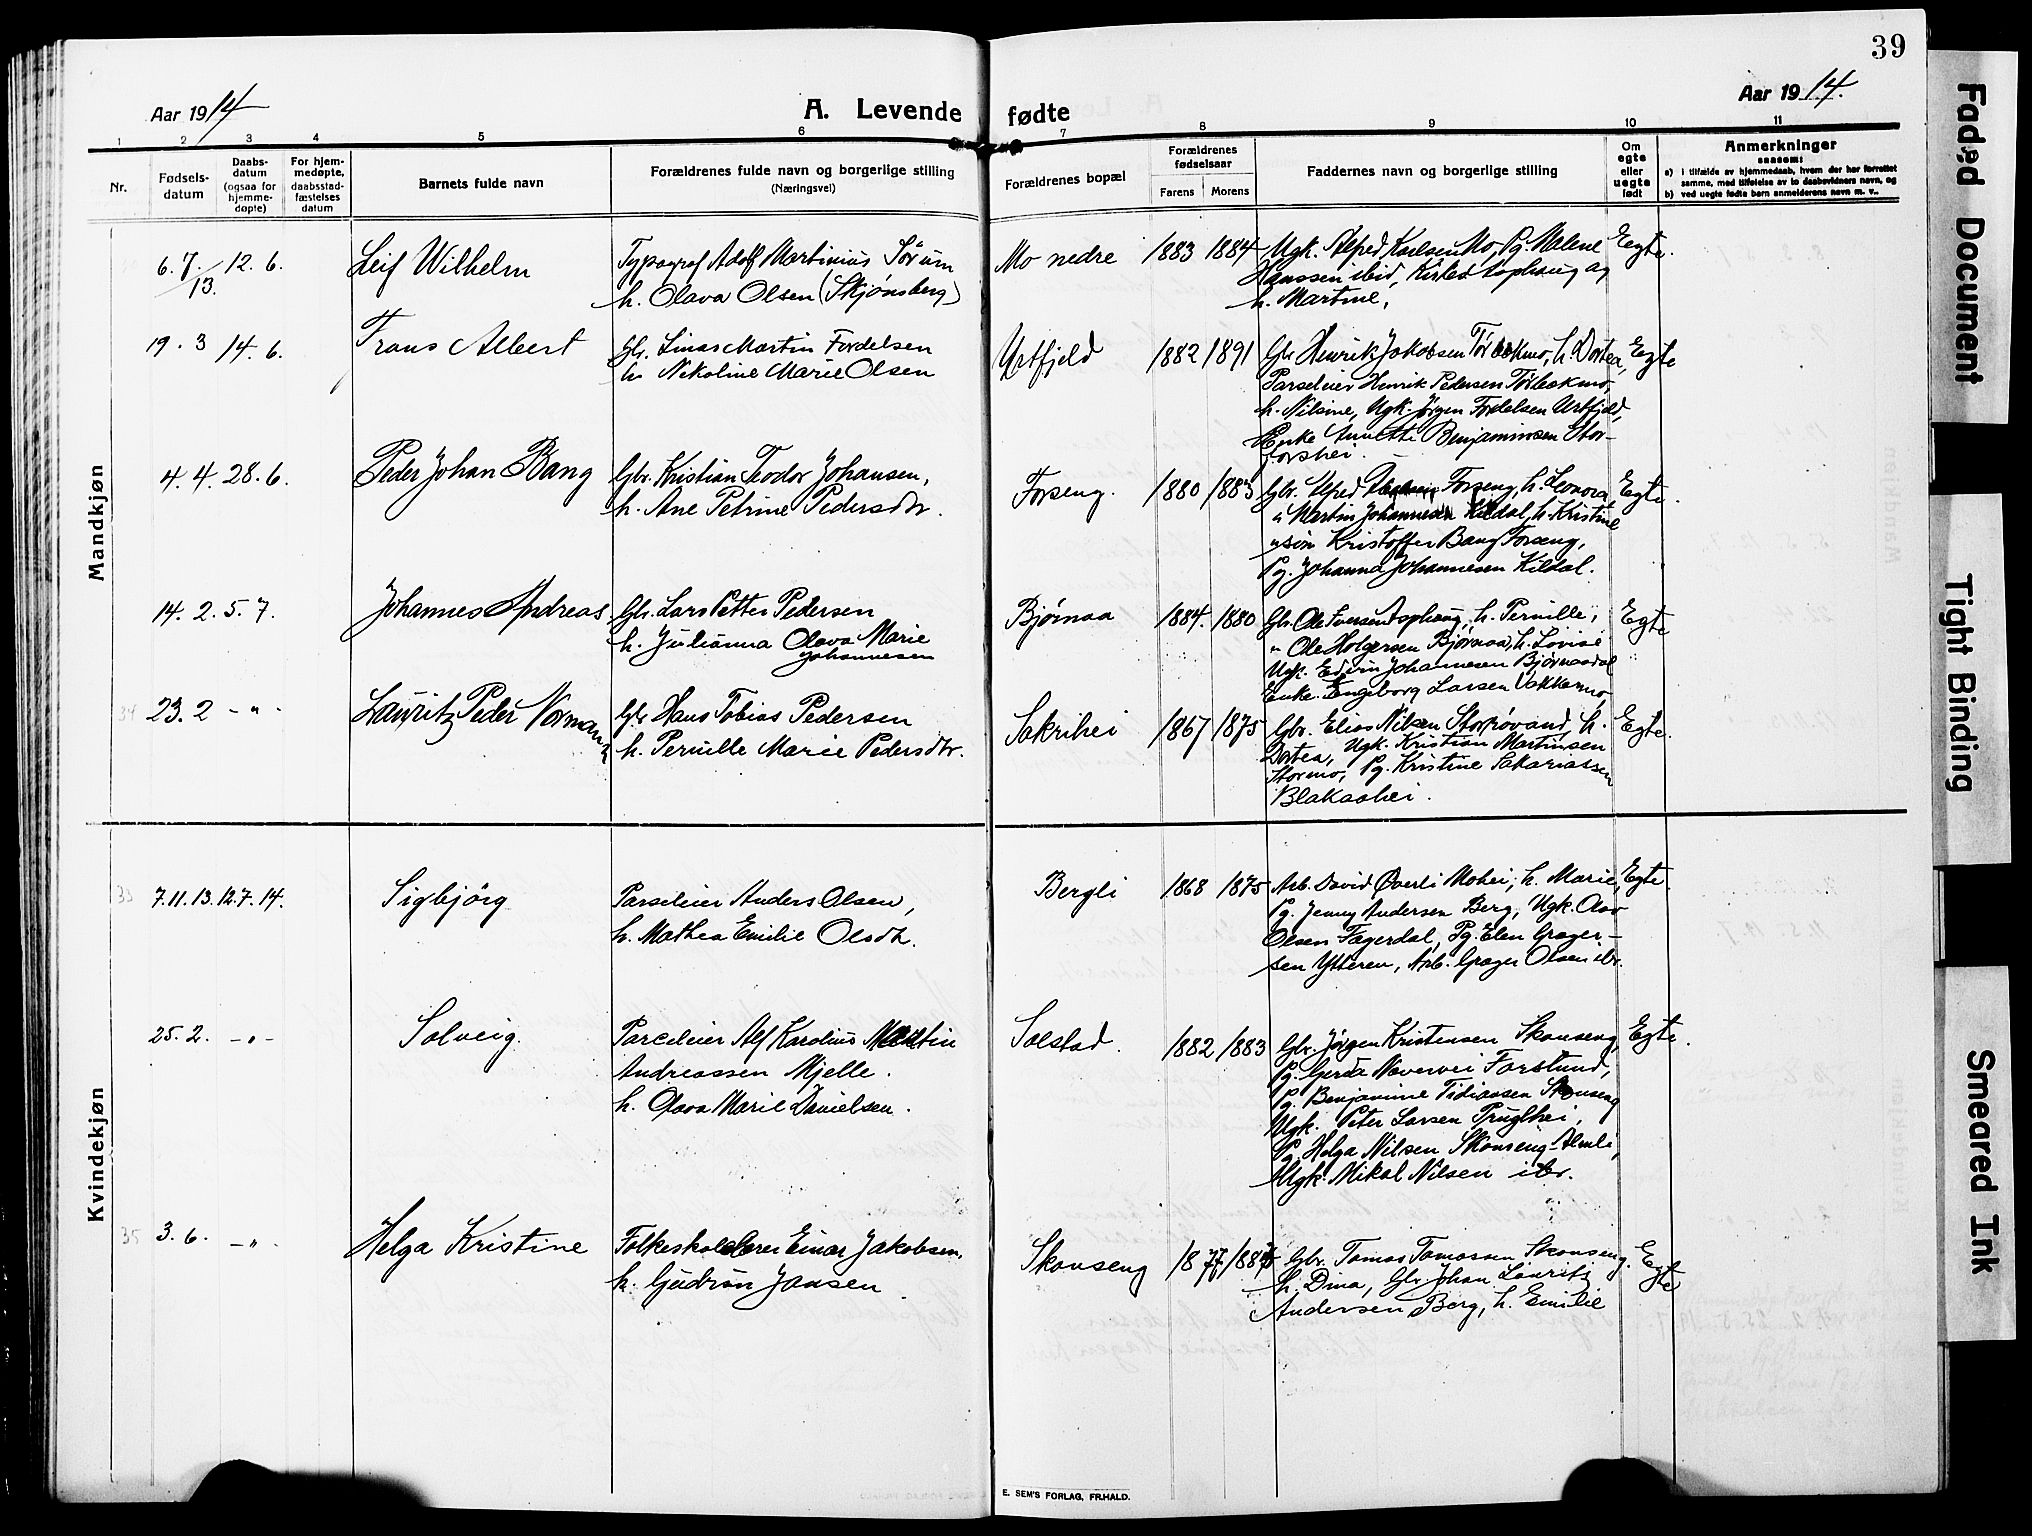 39
Aar 1914
A. Levende fødte
Aar 1914.
1 2 3 4 5 6 7 8 9 10 11
Nr.
Fødsels-
datum
Daabs-
datum
(ogsaa for
hjemme-
døpte)
For hjem-
medøpte,
daabsstad-
fæstelses
datum
Barnets fulde navn
Forældrenes fulde navn og borgerlige stilling
(Næringsvei)
Forældrenes bopæl
Forældrenes
fødselsaar
Farens Morens
Faddernes navn og borgerlige stilling
Om
egte
eller
uegte
født
Anmerkninger
saasom:
a) i tilfælde av hjemmedaab, hvem der har forrettet
samme, med tilføielse av to daabsvidners navn, og
b) ved uegte fødte barn anmelderens navn m. v..
Mandkjøn
6. 7. 13. 12. 6. Leif Wilhelm
Typograf Adolf Martinius Sørum
h. Olava Olsen (Skjønsberg)
Mo nedre 1883 1884
Ugk. Alfred Karlsen Mo, Pg. Malene
Hanssen ibid, Asphaug og
h. Martine,
Egte.
19. 3 14. 6. Frans Albert
Gbr. Linas Martin Fordelsen
h. Nikoline Marie Olsen
Urtfjeld 1882 1891
Gbr Henrik Jakobsen Tørbekmo, h. Dortea,
Parseleier Henrik Pedersen Tørbekmo,
h. Nilsine, Ugk. Jørgen Fordelsen Urtfjeld,
Enke Anette Benjaminsen Stor-
forshei.
Egte
4. 4. 28. 6. Peder Johan Bang
Gbr. Kristian Teodor Johansen,
h. Ane Petrine Pedersdtr.
Forseng. 1880 1883
Gbr. Alfred Forseng, h. Leonora
" Martin Johannesen Kildal, h. Kristine
" søn Kristoffer Bang Forseng,
Pg. Johanna Johannesen Kildal.
Egte.
14. 2. 5. 7. Johannes Andreas
Gbr. Lars Petter Pedersen
h. Julianna Olava Marie
Johannesen
Bjørnaa 1884. 1880
Gbr. Ole Iversen Asphaug, h. Pernille,
" Ole Holgersen Bjørnaa, h. Lovise
Ugk. Edvin Johannesen Bjørnaadal
Enke. Engeborg Larsen Vakkermo,
Egte
34 23. 2 - " - Lauritz Peder Normann
Gbr Hans Tobias Pedersen
h. Pernille Marie Pedersdtr.
Sakrihei 1867 1875
Gbr. Elias Nilsen, h.
Dortea, Ugk. Kristian Martinsen
Stormo, Pg. Kristine Sakariassen
Blakaahei.
Egte.
Kvindekjøn
33 7. 11. 13. 12. 7. 14. Sigbjörg
Parseleier Anders Olsen,
h. Mathea Emilie Olsdtr.
Bergli 1868 1875
Arb. David Øverli Mohei, h. Marie,
Pg. Jenny Andersen Berg, Ugk. Olav
Olsen Fagerdal, Pg. Elen Grager-
sen Ytteren, Arb. Grager Olsen ibr.
Egte.
25. 2. - " - Solveig.
Parceleier Alf Karolius Martin
Andreassen Mjelle.
h. Olava Marie Danielsen.
Solstad. 1882 1883
Gbr. Jørgen Kristensen Skonseng,
Pg. Gerda Forslund,
Pg. Benjamine Tidiansen Skonseng
Ugk. Peter Larsen
Pg. Helga Nilsen Skonseng-Almli,
Ugk. Mikal Nilsen ibr.
Egte.
35 3. 6. - " - Helga Kristine
Folkeskolelærer Einar Jakobsen,
h. Gudrun Jansen.
Skonseng 1877
Gbr. Tomas Tomassen Skonseng.
h. Dina, Gbr Johan Lauritz
Andersen Berg, h. Emilie
Egte
E. SEM'S FORLAG, FR.HALD.
Faded Document
Tight Binding
Smeared Ink